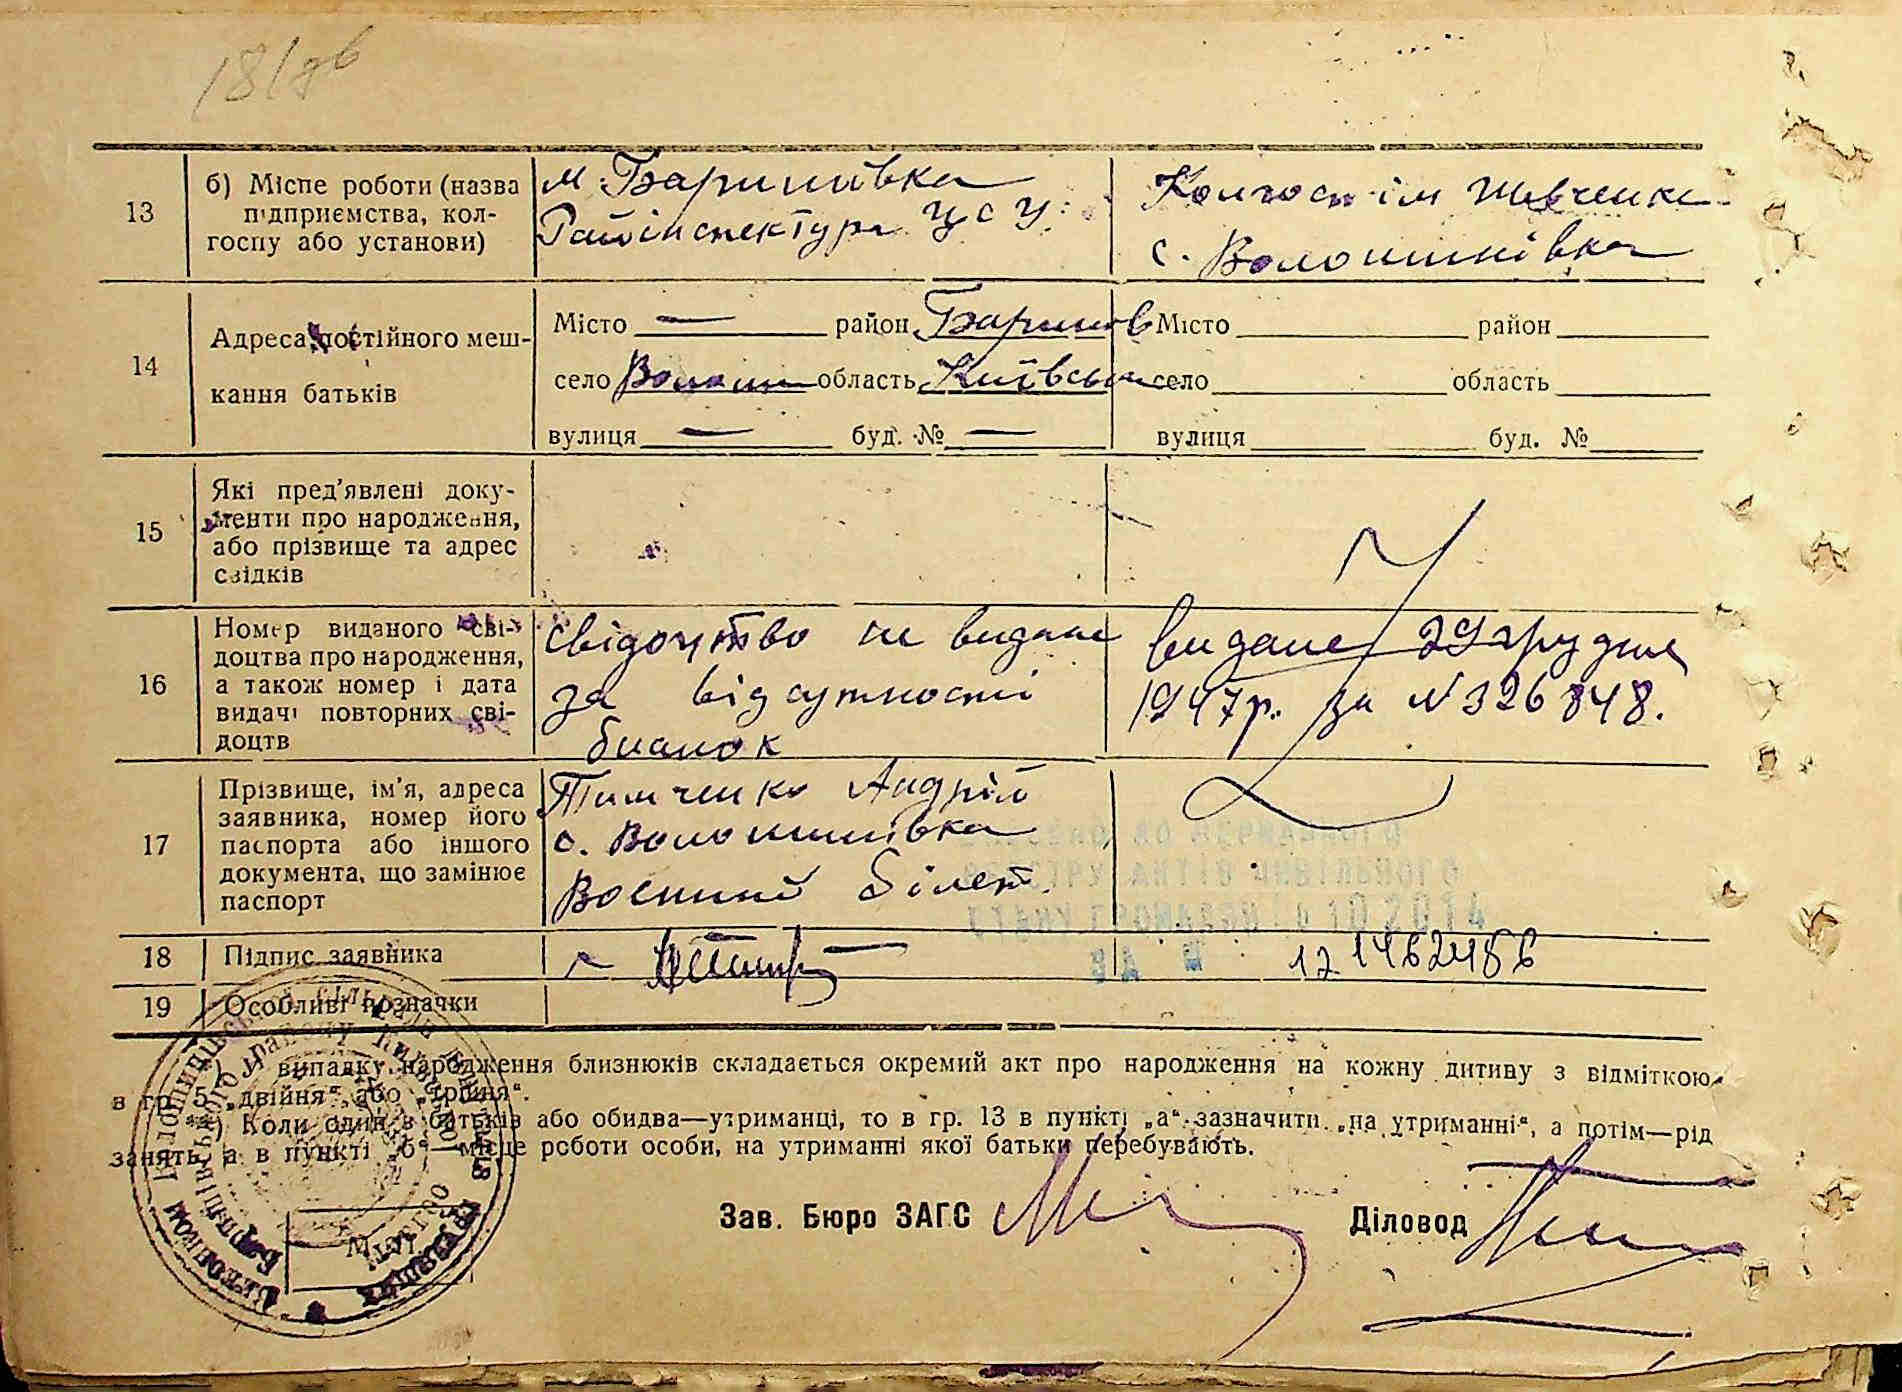 181 зв
13
б) Місце роботи (назва
підприємства, кол-
госпу або установи)
м. Баришівка
Райінспектура ЦСУ.
Колгосп ім Шевченка
с. Волошинівка
14
Адреса постійного меш-
кання батьків
Місто — район Баришів
село Волошин область Київська
вулиця — буд. № —
Місто район
село область
вулиця буд. №
15
Які пред'явлені доку-
менти про народження,
або прізвище та адрес
свідків
16
Номер виданого сві-
доцтва про народження,
а також номер і дата
видачі повторних сві-
доцтв
свідоцтво не видане
за відсутності
бланок
видане 29 грудня
1947р. за N 326848.
17
Прізвище, ім'я, адреса
заявника, номер його
паспорта або іншого
документа, що замінює
паспорт
Тимченко Андрій
с. Волошинівка
Воєнний білет.
18
Підпис заявника
19
Особливі позначки
10 2014
12 1462486
*) У випадку народження близнюків складається окремий акт про народження на кожну дитину з відміткою
в гр. 5 „двійня“ або „трійня“.
**) Коли один з батьків або обидва—утриманці, то в гр. 13 в пункті „а“ зазначити „на утриманні“, а потім—рід
занять, а в пункті „б“—місце роботи особи, на утриманні якої батьки перебувають.
Зав. Бюро ЗАГС
Діловод